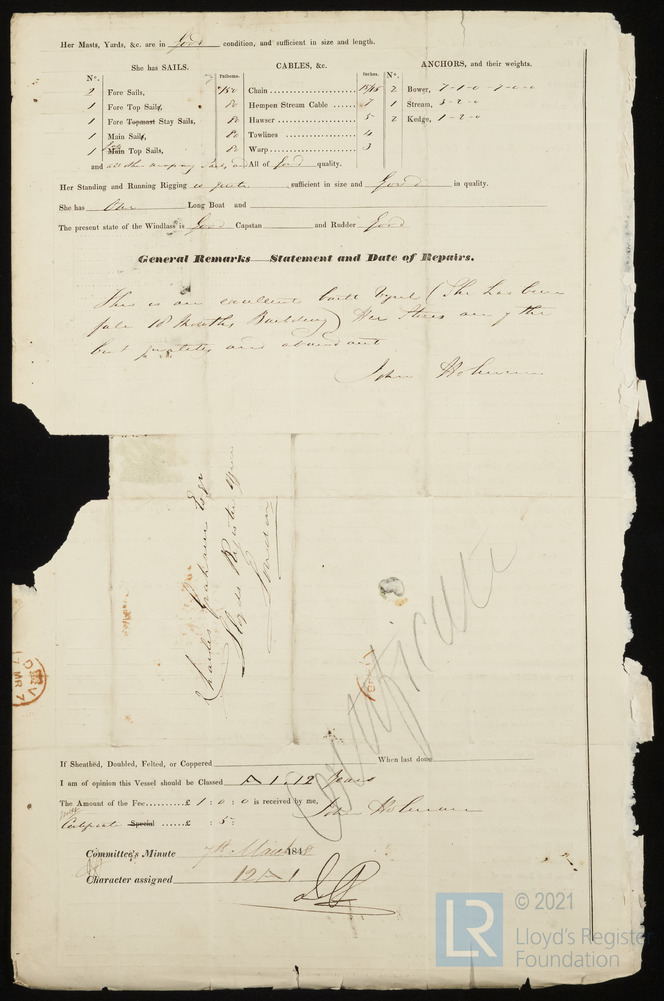 Her Masts, Yards, &c. are in Good condition, and sufficient in size and length.
She has SAILS.
CABLES, &c.
ANCHORS, and their weights.
N°.
Fathoms.
Inches.
N°.
2 Fore Sails,
1 Fore Top Sails,
1 Fore Topmast Stay Sails,
1 Main Sails,
1 Main Top Sails,
and all other
Chain 150
Hempen Stream Cable 80 7
Hawser 80 5
Towlines 80 4
Warp 80 3
All of Good quality.
2 Bower, 7-1-0 7-0-0
1 Stream, 3-2-0
2 Kedge, 1-2-0
Her Standing and Running Rigging is quite sufficient in size and Good in quality.
She has One Long Boat and
The present state of the Windlass is Good Capstan and Rudder Good
General Remarks Statement and Date of Repairs.
This is an excellent built Vessel (She has been
full 18 Months Building) Her Stores are of the
best quality and abundant
John Holman
Charles Graham Esqr
Lloyds Register Office
London
Certificate
If Sheathed, Doubled, Felted, or Coppered When last done
I am of opinion this Vessel should be Classed A 1 12 Years
The Amount of the Fee £ 1 : 0 : 0 is received by me, John Holman
Special £ : 5 :
Committee's Minute 7th March 1848
Character assigned 12 A 1
LR
© 2021
Lloyd's Register
Foundation